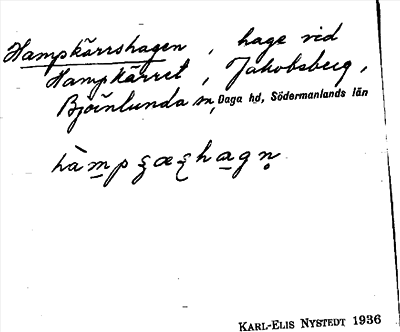 Hampkärrshagen, hage vid
Hampkärret, Jakobsberg,
Björnlunda sn, Daga hd, Södermanlands län
hàmpʂæʂhagn̥
KARL-ELIS NYSTEDT 1936